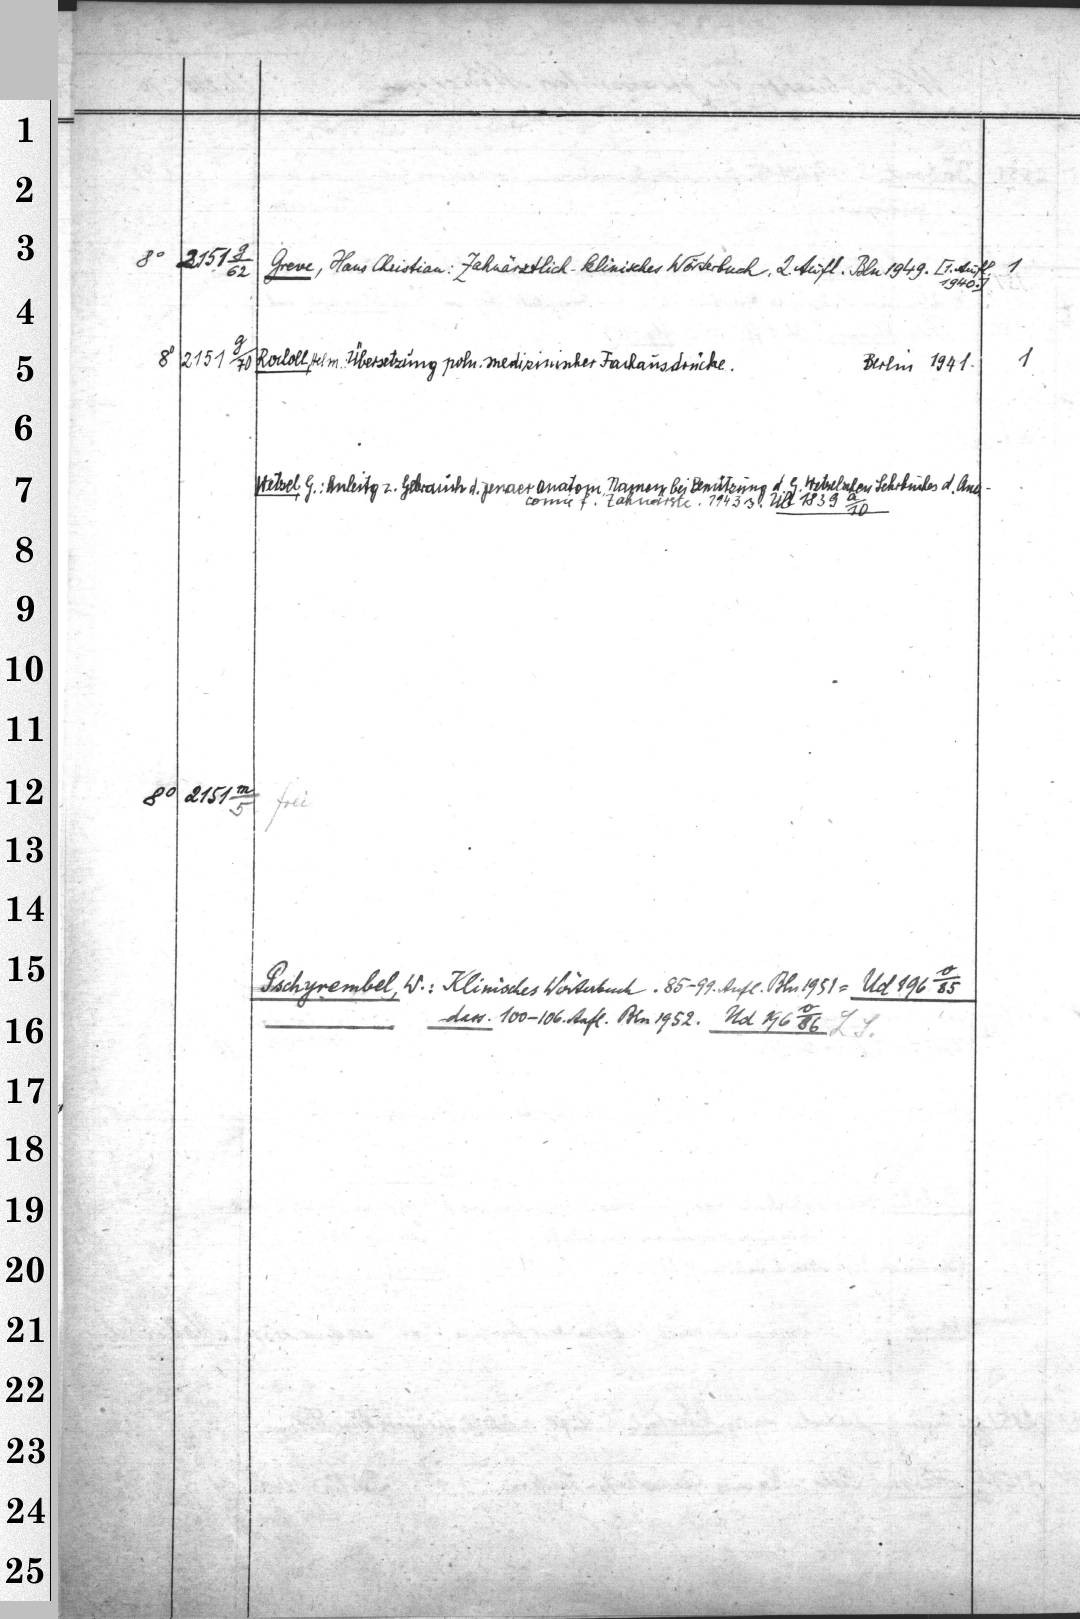 1
2
3
8° 2151 g/62 Greve, Hans Christian: Zahnärztlich-klinisches Wörterbuch. 2. Aufl. Bln 1949. [1. Aufl. 1
1940.]
4
5
8° 2151 g/70 Rodoll, Helm. Übersetzung poln. medizinischer Fachausdrücke. Berlin 1941. 1
6
7
Wetzel, G.: Anleitg z. Gebrauch d. jenaer anatom. Namen bei Benützung d. G. Wetzelschen Lehrbuches d. Ana-
tomie f. Zahnärzte. 1943. 1839 a/10
8
9
10
11
12
8° 2151 m/5 frei
13
14
15
Pschyrembel, W.: Klinisches Wörterbuch. 85-99. Aufl. Bln 1951 = Ud 196 v/85
16
dass. 100-106. Aufl. Bln 1952. Ud 196 v/86 LS.
17
18
19
20
21
22
23
24
25